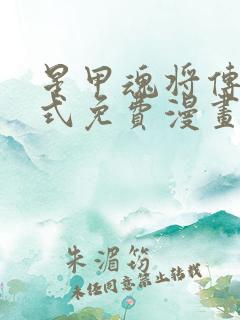 星甲魂将傳
式免費漫畫
朱湄筠
未经同意禁止转载